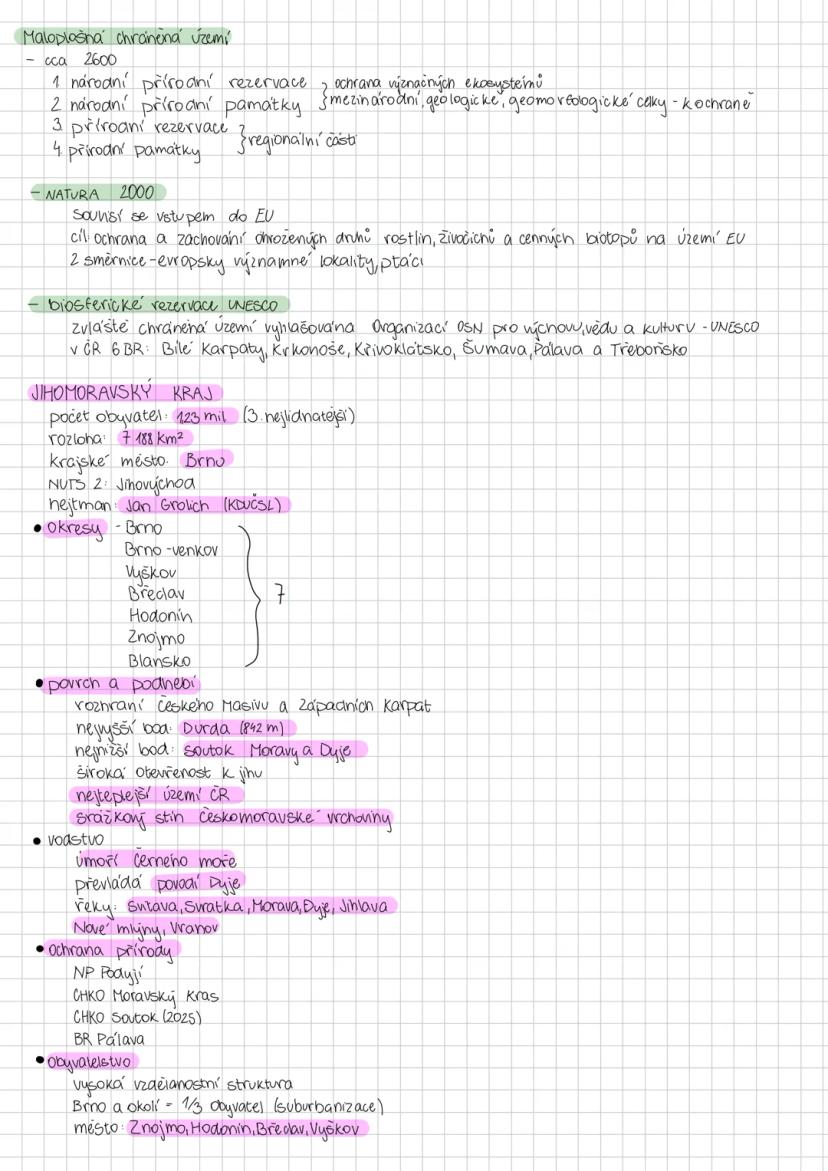 Maloplošná chráněná území
- cca 2600
1 národní přírodní rezervace } ochrana význačných ekosystémů
2 národní přírodní památky } mezinárodní, geologické, geomorfologické celky - k ochraně
3 přírodní rezervace } regionální části
4 přírodní památky
- NATURA 2000
souvisí se vstupem do EU
cíl ochrana a zachování ohrožených druhů rostlin, živočichů a cenných biotopů na území EU
2 směrnice - evropsky významné lokality, ptáci
- biosferické rezervace UNESCO
zvláště chráněná území vyhlašována Organizací OSN pro výchovu, vědu a kulturu - UNESCO
v ČR 6 BR: Bílé Karpaty, Krkonoše, Křivoklátsko, Šumava, Pálava a Třeboňsko
JIHOMORAVSKÝ KRAJ
počet obyvatel: 1,23 mil (3. nejlidnatější)
rozloha: 7 188 km²
krajské město: Brno
NUTS 2: Jihovýchod
hejtman: Jan Grolich (KDUČSL)
• okresy - Brno
Brno-venkov
Vyškov
Břeclav
Hodonín } 7
Znojmo
Blansko
• povrch a podnebí
rozhraní Českého Masivu a Západních Karpat
nejvyšší bod: Durda (842 m)
nejnižší bod: soutok Moravy a Dyje
široká otevřenost k jihu
nejteplejší území ČR
srážkový stín Českomoravské vrchoviny
• vodstvo
úmoří Černého moře
převládá povodí Dyje
řeky: Svitava, Svratka, Morava, Dyje, Jihlava
Nové mlýny, Vranov
• ochrana přírody
NP Podyjí
CHKO Moravský Kras
CHKO Soutok (2025)
BR Pálava
• obyvatelstvo
vysoká vzdělanostní struktura
Brno a okolí = 1/3 obyvatel (suburbanizace)
město: Znojmo, Hodonín, Břeclav, Vyškov